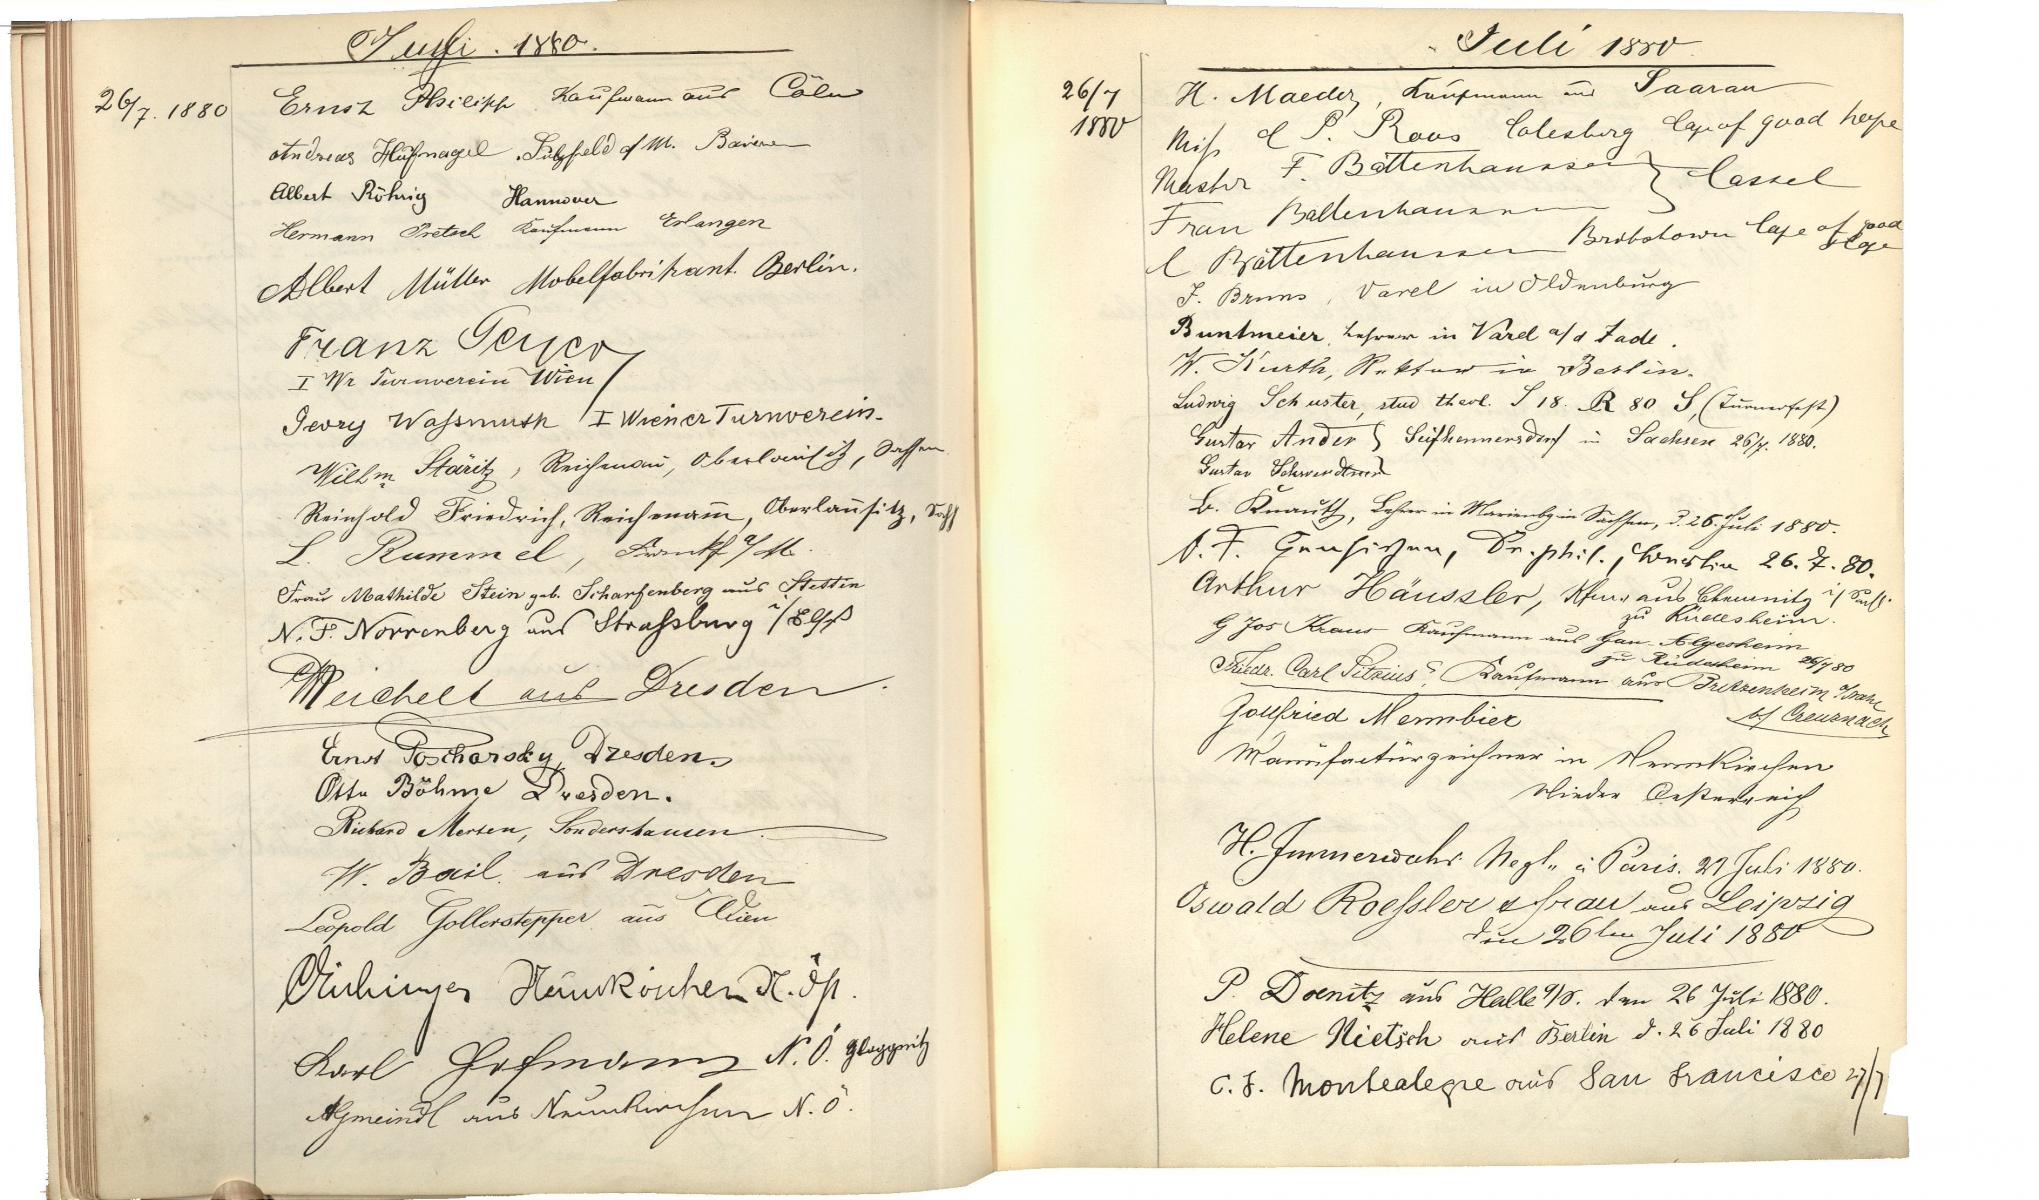 Juli . 1880.
26/7. 1880
Ernst Philipp Kaufmann aus Cöln
Andreas Hufnagel Sulzfeld a/ M. Baiern
Albert Röhrig Hannover
Hermann Pretsch Kaufmann Erlangen
Albert Müller Möbelfabrikant. Berlin.
Franz
I Wr Turnverein Wien
Georg Wassmuth I Wiener Turnverein.
Wilhm Stäritz, Reichenau, Oberlausitz, Sachsen
Reinhold Friedrich, Reichenau, Oberlausitz, Sachs
L. Rummel, Frankf a/M.
Frau Mathilde Stein geb. Scharfenberg aus Stettin
N. F. Norrenberg aus Strassburg i/Elss
Weichelt aus Dresden.
Ernst Poscharsky, Dresden.
Otto Böhme Dresden.
Richard Merten, Sondershausen.
W. Bail. aus Dresden
Leopold Gollerstepper aus Wien
Neunkirchen N. Öst.
Karl Hofmann N. Ö. Gloggnitz
aus Neunkirchen N. Ö.
Juli 1880
26/7
1880
H. Maeder, Kaufmann aus Saarau
Miss C P. Roos Colesberg Cape of good hope
Master F. Battenhaussen } Cassel
Frau Battenhaussen
C Battenhaussen Britstown Cape of good Hope
F. Bruns, Varel in Oldenburg
Buntmeier, Lehrer in Varel a/d Jade.
W. Kurth, Rektor in Berlin.
Ludwig Schuster, stud theol. S 18. R 80 S, (Turnerfest)
Gustav Ander } Seifhennersdorf in Sachsen 26/7. 1880.
Gustav Schwerdtner
B. Knauth, Lehrer in Marienbg in Sachsen, d. 26. Juli 1880.
Gensichen, Dr. phil., Berlin 26. 7. 80.
Arthur Häussler, Kfm. aus Chemnitz i/ Sachs.
zu Rüdesheim.
G Jos Kraus Kaufmann aus Gau-Algesheim
zu Rüdesheim 26/7 80
Friedr. Carl Kaufmann aus Bretzenheim a/Nahe
b/ Creuznach
Gottfried Mennbier
Manufacturzeichner in Neunkirchen
Nieder Oesterreich
H. Immerwahr Negt. à Paris. 27 Juli 1880.
Oswald Roessler & Frau aus Leipzig
den 26ten Juli 1880
P. Doenitz aus Halle a/S. den 26 Juli 1880.
Helene Nietsch aus Berlin d. 26 Juli 1880
C. F. Montealegre aus San Francisco 27/7